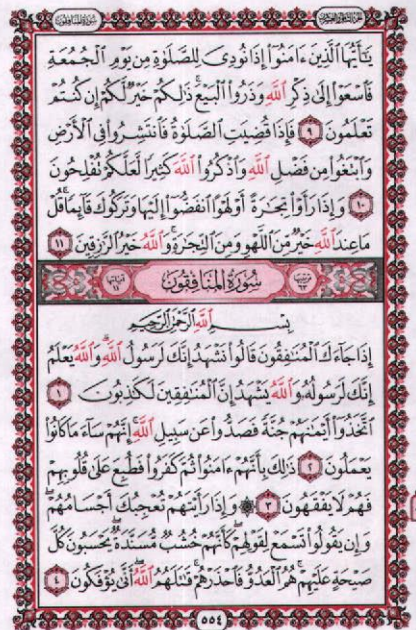 سورة المنافقون
يَٰٓأَيُّهَا ٱلَّذِينَ ءَامَنُوٓا۟ إِذَا نُودِىَ لِلصَّلَوٰةِ مِن يَوْمِ ٱلْجُمُعَةِ
فَٱسْعَوْا۟ إِلَىٰ ذِكْرِ ٱللَّهِ وَذَرُوا۟ ٱلْبَيْعَ ۚ ذَٰلِكُمْ خَيْرٌ لَّكُمْ إِن كُنتُمْ
تَعْلَمُونَ ٩ فَإِذَا قُضِيَتِ ٱلصَّلَوٰةُ فَٱنتَشِرُوا۟ فِى ٱلْأَرْضِ
وَٱبْتَغُوا۟ مِن فَضْلِ ٱللَّهِ وَٱذْكُرُوا۟ ٱللَّهَ كَثِيرًا لَّعَلَّكُمْ تُفْلِحُونَ
١٠ وَإِذَا رَأَوْا۟ تِجَٰرَةً أَوْ لَهْوًا ٱنفَضُّوٓا۟ إِلَيْهَا وَتَرَكُوكَ قَآئِمًا ۚ قُلْ
مَا عِندَ ٱللَّهِ خَيْرٌ مِّنَ ٱللَّهْوِ وَمِنَ ٱلتِّجَٰرَةِ ۚ وَٱللَّهُ خَيْرُ ٱلرَّٰزِقِينَ ١١
ترتيبها ٦٣ سُورَةُ المنَافِقُونَ آياتها ١١
بِسْمِ ٱللَّهِ ٱلرَّحْمَٰنِ ٱلرَّحِيمِ
إِذَا جَآءَكَ ٱلْمُنَٰفِقُونَ قَالُوا۟ نَشْهَدُ إِنَّكَ لَرَسُولُ ٱللَّهِ ۗ وَٱللَّهُ يَعْلَمُ
إِنَّكَ لَرَسُولُهُۥ وَٱللَّهُ يَشْهَدُ إِنَّ ٱلْمُنَٰفِقِينَ لَكَٰذِبُونَ ١
ٱتَّخَذُوٓا۟ أَيْمَٰنَهُمْ جُنَّةً فَصَدُّوا۟ عَن سَبِيلِ ٱللَّهِ ۚ إِنَّهُمْ سَآءَ مَا كَانُوا۟
يَعْمَلُونَ ٢ ذَٰلِكَ بِأَنَّهُمْ ءَامَنُوا۟ ثُمَّ كَفَرُوا۟ فَطُبِعَ عَلَىٰ قُلُوبِهِمْ
فَهُمْ لَا يَفْقَهُونَ ٣ ۞ وَإِذَا رَأَيْتَهُمْ تُعْجِبُكَ أَجْسَامُهُمْ ۖ
وَإِن يَقُولُوا۟ تَسْمَعْ لِقَوْلِهِمْ ۖ كَأَنَّهُمْ خُشُبٌ مُّسَنَّدَةٌ ۖ يَحْسَبُونَ كُلَّ
صَيْحَةٍ عَلَيْهِمْ ۚ هُمُ ٱلْعَدُوُّ فَٱحْذَرْهُمْ ۚ قَٰتَلَهُمُ ٱللَّهُ ۖ أَنَّىٰ يُؤْفَكُونَ ٤
٥٥٤